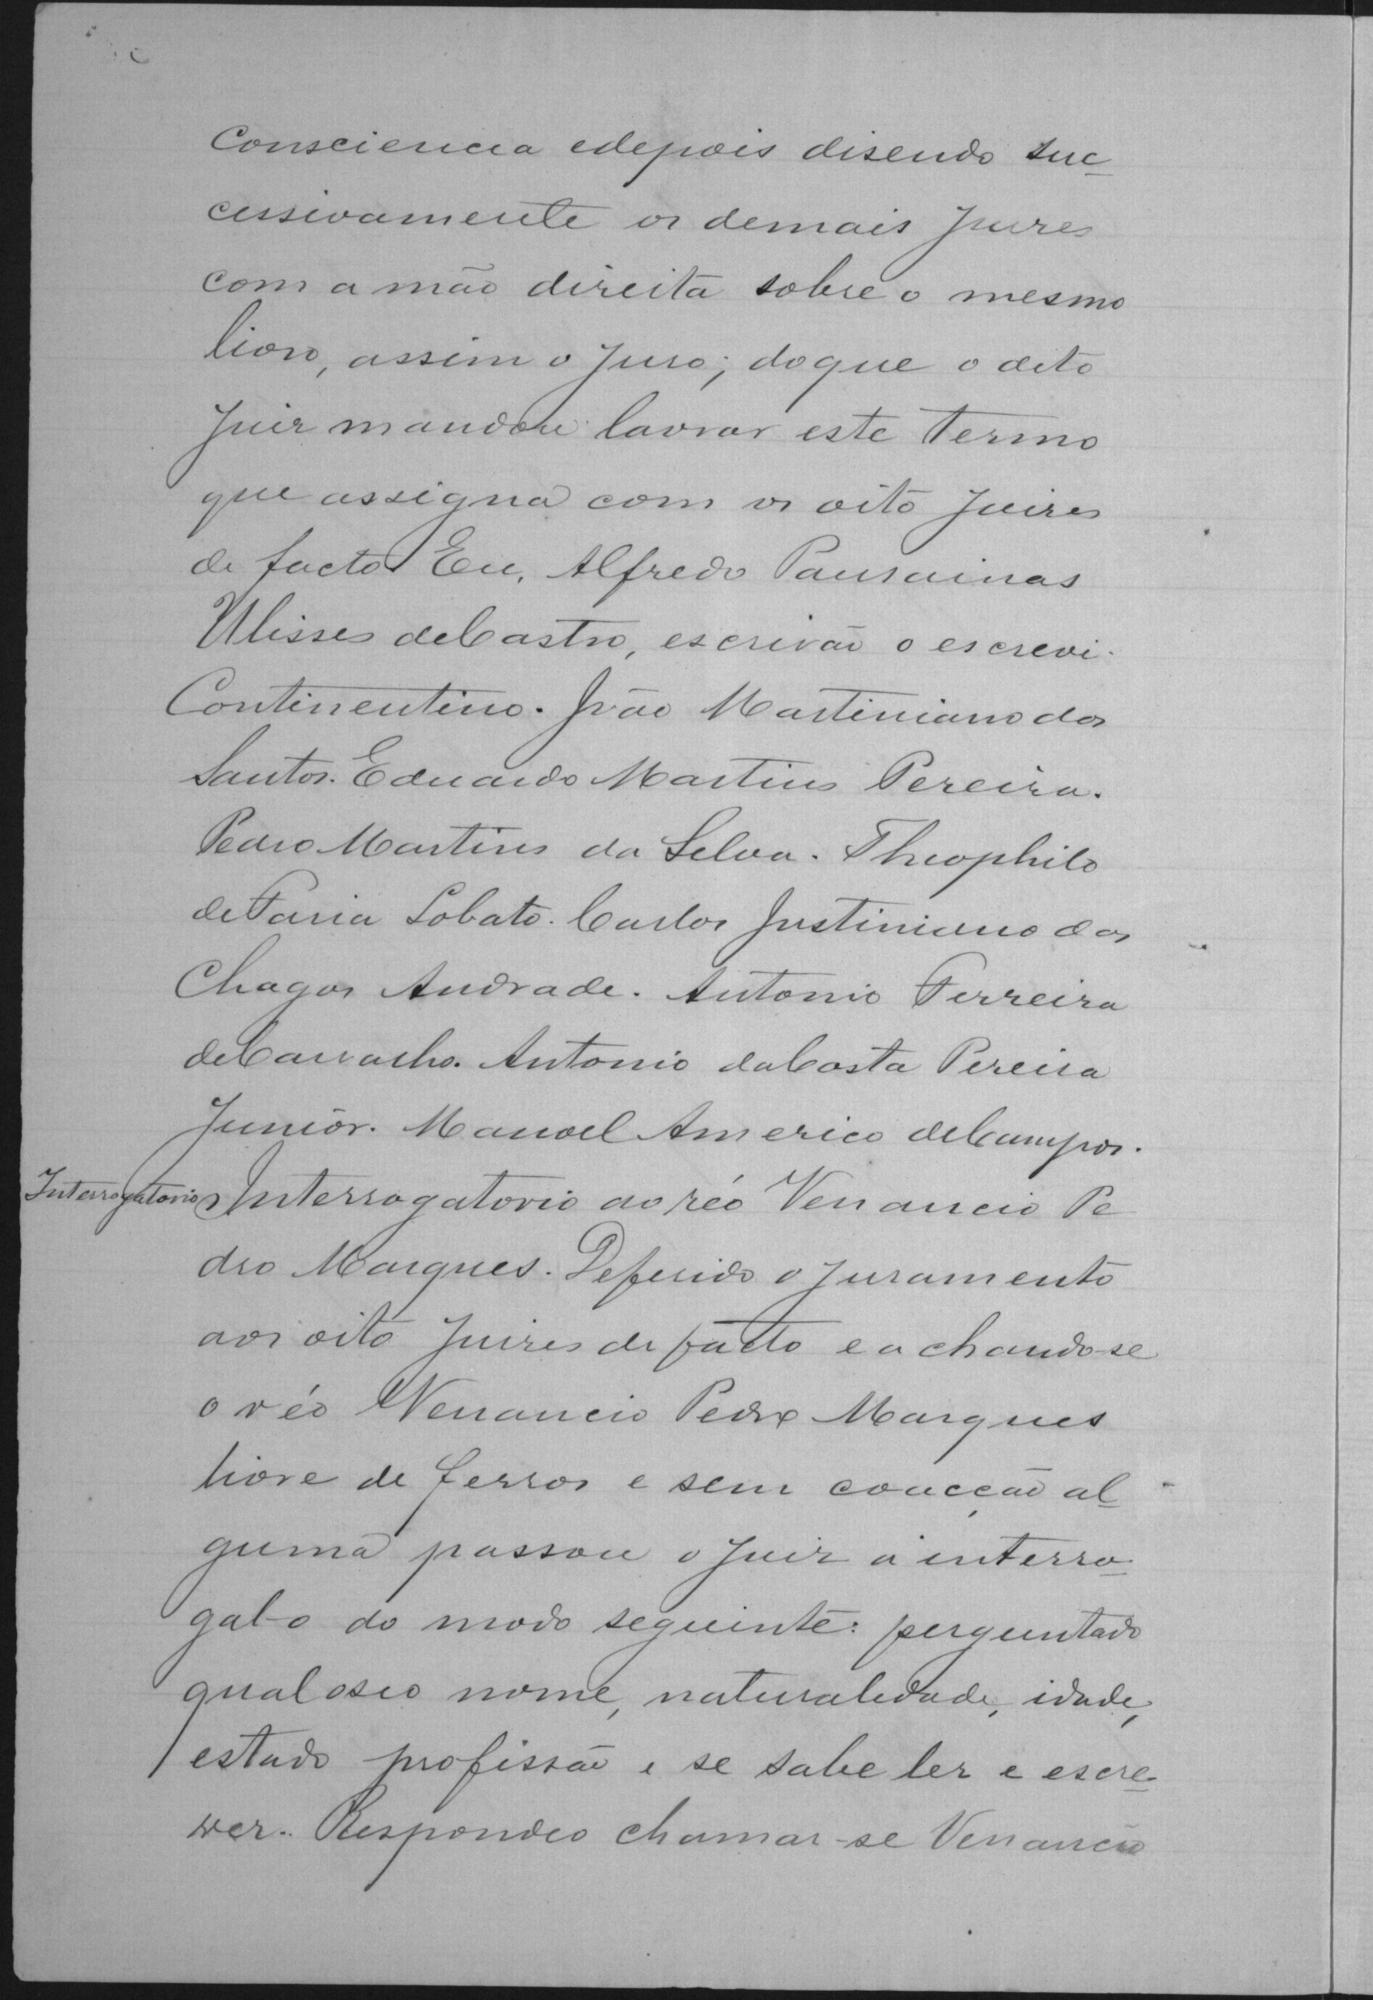 Consciencia edepois disendo suc-
cessivamente os demais Juizes
com a mão direita sobre o mesmo
livro, assim o Juro; do que o dito
Juiz mandou lavrar este termo
que assigna com os oito Juizes
de facto. Eu, Alfredo Pausainas
Ulisses de Castro, escrivão o escrevi.
Continentino. João Martiniano dos
Santos. Eduardo Martins Pereira.
Pedro Martins da Silva. Theophilo
de Faria Lobato. Carlos Justiniano das
Chagas Andrade. Antonio Ferreira
de Carvalho. Antonio da Costa Pereira
Junior. Manoel Americo de Campos.
Interrogatorio Interrogatorio ao réo Venancio Pe
dro Marques. Deferido o juramento
aos oito Juizes de facto e achando-se
o réo Venancio Pedro Marques
livre de ferros e sem coacção al-
guma passou o Juiz a interro-
gal-o do modo seguinte: perguntado
qual o seo nome, naturalidade, idade,
estado profissão e se sabe ler e escre-
ver. Respondeo chamar-se Venancio